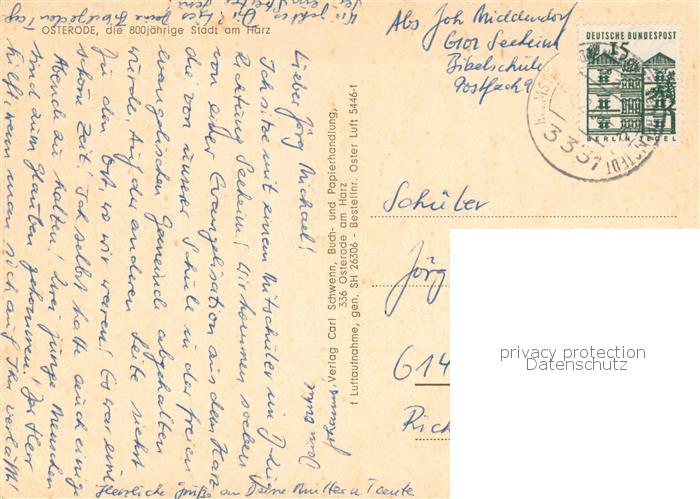 OSTERODE, die 800jährige Stadt am Harz
Abs Joh Middendorf
6101 Seeheim
Bibelschule
Postfach 9
DEUTSCHE BUNDESPOST
15
BERLIN TEGEL
3331
Schüler
Jörg
614
Rich
privacy protection
Datenschutz
Verlag Carl Schwenn, Buch- und Papierhandlung,
336 Osterode am Harz
f Luftaufnahme, gen. SH 26306 - Bestellnr. Oster Luft 5446-1
Lieber Jörg Michael!
Ich sitze mit einem Mitschüler im
Richtung Seeheim! Wir kommen soeben
von einer Evangelisation aus dem Harz
die von unserer Schule in der freien
evangelischen Gemeinde abgehalten
wurde. Auf der anderen Seite siehst
Du den Ort, wo wir waren! Es war eine
schöne Zeit! Ich selbst hatte auch einige
Abende zu halten! Zwei junge Menschen
sind zum Glauben gekommen! Der Herr
hilft, wenn man sich auf Ihn verläßt!
Deine Bibel jeden Tag
Herzliche Grüße an Deine Mutter u Tante